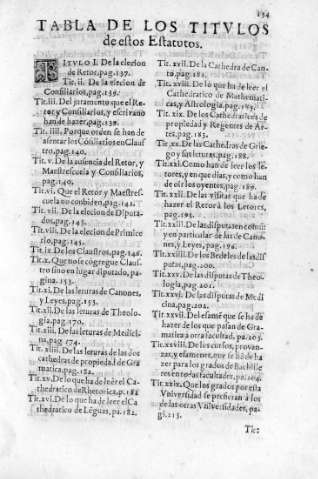 134
TABLA DE LOS TITVLOS
de estos Estatutos.
TITVLO I. De la elecion
de Retor, pag. 137.
Tit. ii. De la eleccion de
Consiliarios, pag. 139.
Tit. iii. Del juramento que el Re-
tor y Consiliarios, y escrivano
han de hazer, pag. 139.
Tit. iiii. Porque orden se han de
asentar los Cósiliarios en Claus
tro, pag. 140.
Tit. v. De la ausencia del Retor, y
Maestrescuela y Consiliarios,
pag. 140.
Tit. vi. Que el Retor y Maestres-
cuela no conbiden, pag. 142.
Tit. vii. De la elecion de Diputa-
dos, pag. 143.
Tit. viii. De la elecion de Primice
rio, pag. 145.
Tit. ix. De los Claustros, pag. 146.
Tit. x. Que no se cógregue Claus
tro sino en lugar diputado, pa-
gina. 153.
Tit. xi. De las leturas de Canones,
y Leyes, pag. 153.
Tit. xii. De las leturas de Theolo-
gia, pag. 170.
Tit. xiii. De las leturas de Medici-
na, pag. 174.
Tit. xiiii. De las leturas de las dos
cathedras de propiedad de Gra
matica, pag. 182.
Tit. xv. De lo que ha de leer el Ca
thedratico de Rhetorica, p. 182
Tit. xvi. De lo que ha de leer el Ca
thedratico de Léguas, pa. 182.
Tit. xvii. De la Cathedra de Can-
to, pag. 182.
Tit. xviii. De lo que ha de leer el
Cathedratico de Mathemati-
cas, y Astrologia, pag. 183.
Tit. xix. De los Cathedraticos de
propiedad y Regentes de Ar-
tes, pag. 185.
Tit. xx. De las Cathedras de Grie-
go y sus leturas, pag. 188.
Tit. xxi. Como han de leer los le-
tores, y en que dias, y como han
de oir los oyentes, pag. 189.
Tit. xxii. De las visitas que ha de
hazer el Retor à los Letores,
pag. 193.
Tit. xxiii. De las disputas en comú
y en particular de las de Cano-
nes, y Leyes, pag. 194.
Tit. xxiiii. De los Bedeles de las dis
putas, pag. 200.
Tit. xxv. De las disputas de Theo-
logia, pag. 201.
Tit. xxvi. De las disputas de Medi
cina, pag. 202.
Tit. xxvii. Del examé que se ha de
hazer de los que pasan de Gra-
matica a otra facultad, pa. 203.
Tit. xxviii. De los cursos, provan-
zas, y examenes, que se ha de ha
zer para los grados de Bachille
res en todas facultades, pa. 204.
Tit. xxix. Que los grados por esta
Vniversidad se prefieran à los
de las otras Vniversidades, pa-
gi. 213.
Tit: